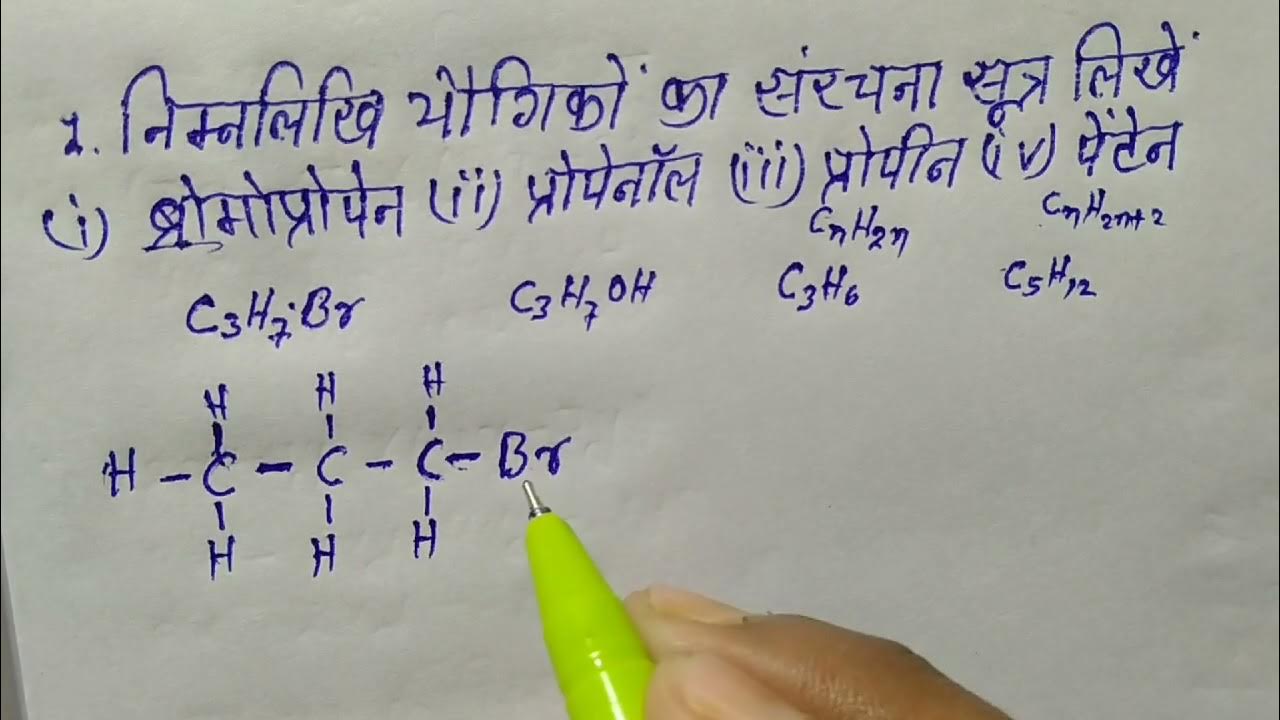 1. निम्नलिखि यौगिकों का संरचना सूत्र लिखें
(i) ब्रोमोप्रोपेन (ii) प्रोपेनॉल (iii) प्रोपीन (iv) पेंटेन
CnH2n CnH2n+2
C3H7Br C3H7OH C3H6 C5H12
H H H
H - C - C - C - Br
H H H